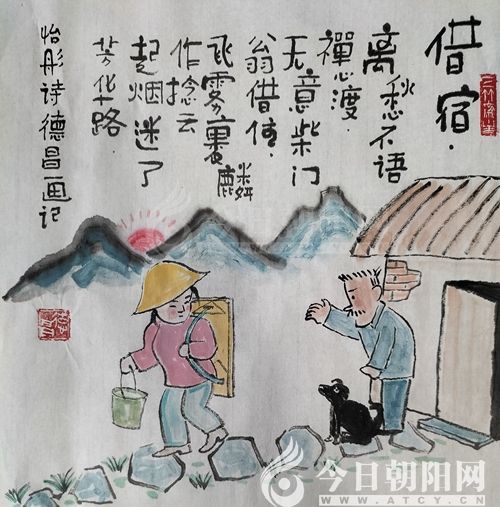 借宿.
离愁不语
禅心渡.
无意柴门
翁借住.
飞雾裹麟
作捻云
起烟迷了
芳华路
怡彤诗德昌画记
今日朝阳网
WWW.ATCY.CN